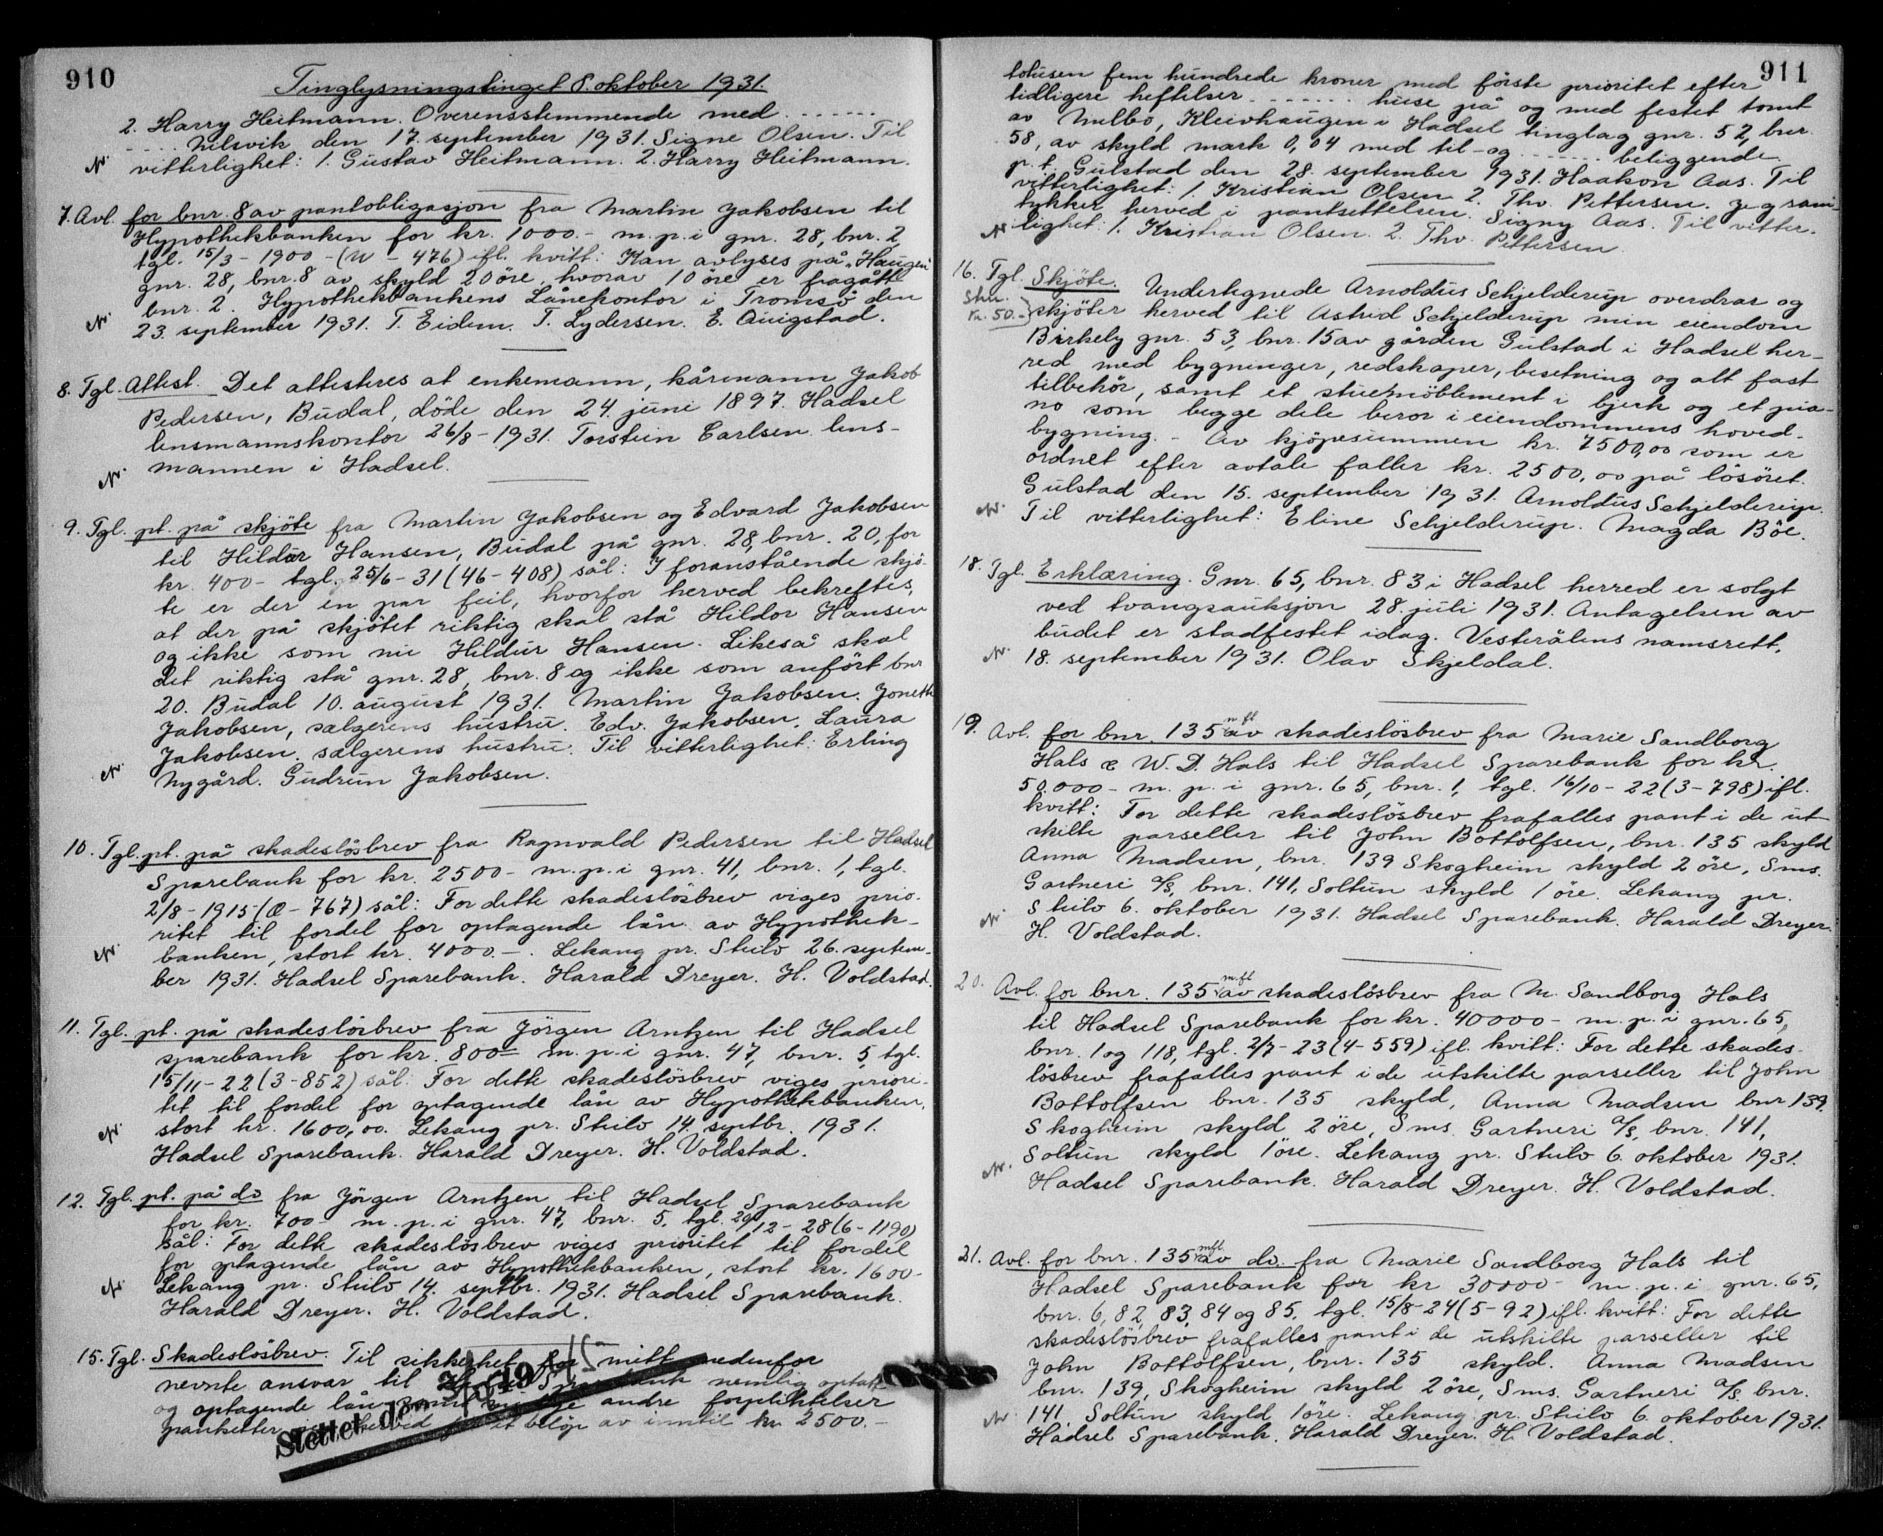 910
Tinglysningstinget 8. oktober 1931.
2. Harry Heitmann. Overensstemmende med ......
.... Ulsvik den 17. september 1931. Signe Olsen. Til
N. vitterlighet: 1. Gustav Heitmann. 2. Harry Heitmann.
7. Avl. for bnr. 8 av pantobligasjon fra Martin Jakobsen til
Hypothekbanken for kr. 1000.- m.p.i gnr. 28, bnr. 2,
tgl. 15/3-1900-(N-476) ifl. kvitt: Kan avlyses på "Haugen"
gnr. 28, bnr. 8 av skyld 20 öre, hvorav 10 öre er fragått
bnr. 2. Hypothekbankens Lånekontor i Tromsö den
N. 23. september 1931. T. Eidem. T. Lydersen. E. Quigstad.
8. Tgl. Attest. Det attesteres at enkemann, kårmann Jakob
Pedersen, Budal, döde den 24. juni 1897. Hadsel
lensmannskontor 26/8-1931. Torstein Carlsen lens-
N. mannen i Hadsel.
9. Tgl. pt. på skjöte fra Martin Jakobsen og Edvard Jakobsen
til Hildur Hansen, Budal på gnr. 28, bnr. 20, for
kr. 400- tgl. 25/6-31 (46-408) sål: I foranstående skjö-
te er der en par feil, hvorfor herved bekreftes,
at der på skjötet riktig skal stå Hildor Hansen
og ikke som nu Hildur Hansen. Likeså skal
det riktig stå gnr. 28, bnr. 8 og ikke som anfört bnr
20. Budal 10. august 1931. Martin Jakobsen. Jonette
Jakobsen, sælgerens hustru. Edv. Jakobsen, Laura
Jakobsen. sælgerens hustru. Til vitterlighet: Erling
N. Nygård. Gudrun Jakobsen.
10. Tgl. pt. på skadeslösbrev fra Ragnvald Pedersen til Hadsel
Sparebank for kr. 2500- m.p.i gnr. 41, bnr. 1, tgl.
2/8-1915-(Q-767) sål: For dette skadeslösbrev viges prio-
ritet til fordel for optagende lån av Hypothek-
N. banken, stort kr. 4000.-. Lekang pr. Stilo 26. septem-
ber 1931. Hadsel Sparebank. Harald Dreyer. H. Voldstad.
11. Tgl. pt. på skadeslösbrev fra Jörgen Arntzen til Hadsel
sparebank for kr. 800- m.p.i gnr. 47, bnr. 5, tgl.
15/11-22 (3-852) sål: For dette skadeslösbrev viges priori-
tet til fordel for optagende lån av Hypothekbanken,
N. stort kr. 1600,00. Lekang pr. Stilo 14. septbr. 1931.
Hadsel Sparebank. Harald Dreyer. H. Voldstad.
12. Tgl. pt. på do fra Jörgen Arntzen til Hadsel Sparebank
for kr. 700- m.p.i gnr. 47, bnr. 5, tgl. 20/12-28 (6-1190)
sål: For dette skadeslösbrev viges prioritet til fordel
for optagende lån av Hypothekbanken, stort kr. 1600-
N. Lekang pr. Stilo 14. septbr. 1931. Hadsel Sparebank.
Harald Dreyer. H. Voldstad.
15. Tgl. Skadeslösbrev. Til sikkerhet for mitt nedenfor
nevnte ansvar til Sparebank nemlig optatt
og optagende lån andre forpliktelser
pantsetter herved for et beløp av inntil kr. 2500.-
Slettet den 19
911
totusen fem hundrede kroner med förste prioritet efter
tidligere heftelser ...... huse på og med festet tomt
av Melbo, Kleivhaugen i Hadsel tinglag gnr. 52, bnr.
58, av skyld mark 0,04 med til- og ...... beliggende
p.t. Gulstad den 28. september 1931. Haakon Aas. Til
vitterlighet: 1. Kristian Olsen 2. Thv. Pettersen. Jeg sam-
tykker herved i pantsettelsen. Signy Aas. Til vitter-
N. lighet: 1. Kristian Olsen. 2. Thv. Pettersen.
16. Tgl. Skjöte. Undertegnede Arnoldus Schjelderup overdrar og
kr. 50.- skjöter herved til Astrid Schjelderup min eiendom
Birkely gnr. 53, bnr. 15 av gården Gulstad i Hadsel her-
red med bygninger, redskaper, besetning og alt fast
tilbehör, samt et stuemöblement i bjerk og et pia-
no som begge dele beror i eiendommens hoved-
bygning. - Av kjöpesummen kr. 7500,00 som er
ordnet efter avtale faller kr. 2500,00 på lösöret.
Gulstad den 15. september 1931. Arnoldus Schjelderup.
N. Til vitterlighet: Eline Schjelderup. Magda Böe.
18. Tgl. Erklæring. Gnr. 65, bnr. 83 i Hadsel herred er solgt
ved tvangsauksjon 28. juli 1931. Antagelsen av
budet er stadfestet idag. Vesterålens namsrett,
N. 18. september 1931. Olav Skjeldal.
19. Avl. for bnr. 135 m.fl. av skadeslösbrev fra Marie Sandborg
Hals & W. D. Hals til Hadsel Sparebank for kr.
50.000- m.p.i gnr. 65, bnr. 1, tgl. 16/10-22 (3-798) ifl.
kvitt: For dette skadeslösbrev frafalles pant i de ut-
skilte parseller til John Bottolfsen, bnr. 135 skyld
Anna Madsen, bnr. 139 Skogheim skyld 2 öre, Sms.
Gartneri a/s, bnr. 141, Soltun skyld 1 öre. Lekang pr.
N. Stilo 6. oktober 1931. Hadsel Sparebank. Harald Dreyer.
H. Voldstad.
20. Avl. for bnr. 135 m.fl. av skadeslösbrev fra M. Sandborg Hals
til Hadsel Sparebank for kr. 40000- m.p.i gnr. 65,
bnr. 1 og 118, tgl. 2/7-23 (4-559) ifl. kvitt: For dette skades-
lösbrev frafalles pant i de utskilte parseller til John
Bottolfsen bnr. 135 skyld, Anna Madsen bnr 139.
Skogheim skyld 2 öre, Sms. Gartneri a/s, bnr. 141,
N. Soltun skyld 1 öre. Lekang pr. Stilo 6. oktober 1931.
Hadsel Sparebank. Harald Dreyer. H. Voldstad.
21. Avl. for bnr. 135 m.fl. av do. fra Marie Sandborg Hals til
Hadsel Sparebank for kr 30000- m.p.i gnr. 65,
bnr. 6, 82, 83, 84 og 85, tgl. 15/8-24 (5-92) ifl. kvitt: For dette
skadeslösbrev frafalles pant i de utskilte parseller til
John Bottolfsen, bnr. 135 skyld. Anna Madsen
bnr. 139, Skogheim skyld 2 öre, Sms. Gartneri a/s bnr.
N. 141, Soltun skyld 1 öre. Lekang pr. Stilo 6. oktober 1931.
Hadsel Sparebank. Harald Dreyer. H. Voldstad.